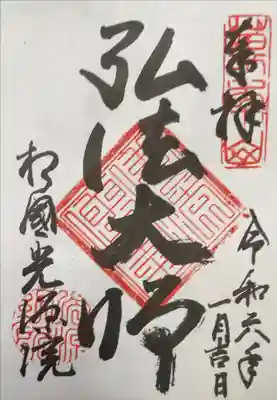 奉拝
令和六年
一月吉日
弘法大師
相國光源院